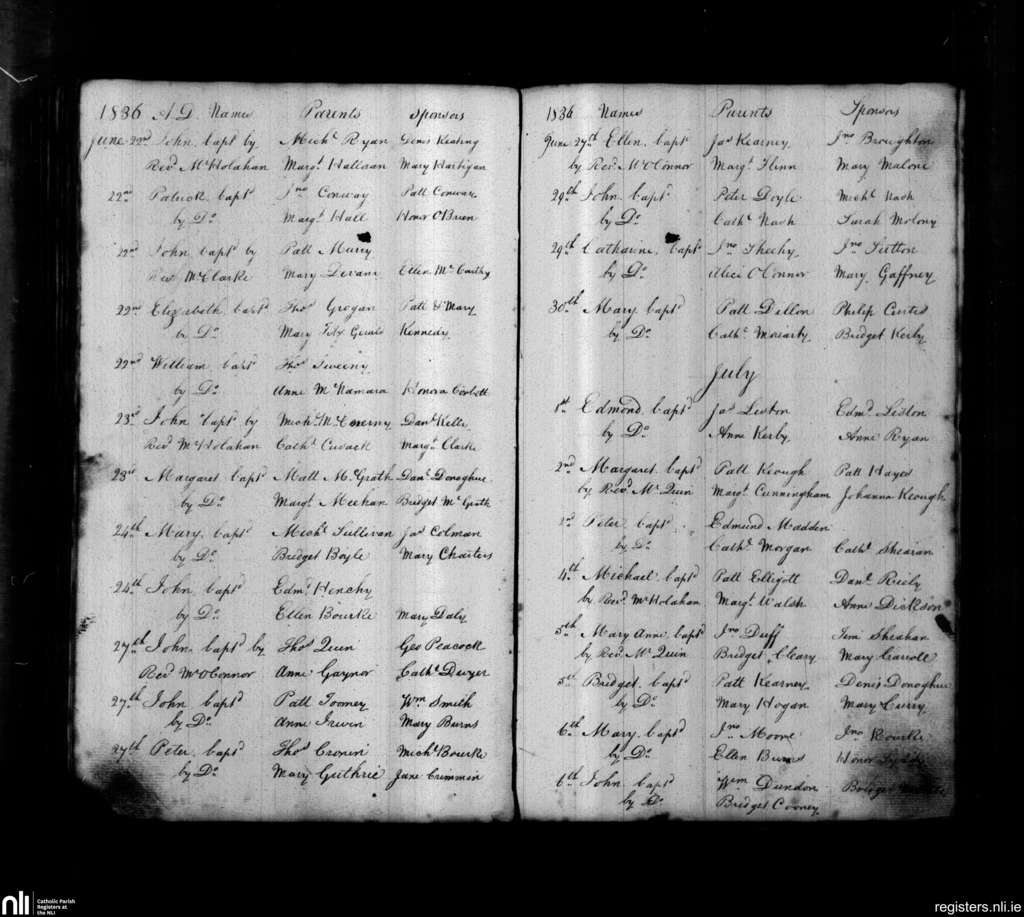 1836 A.D. Names Parents Sponsors
June 22nd John, bapt by Michl Ryan Denis Keating
Revd Mr Holahan Margt Hallaan Mary Hartigan
22nd Patrick bapt Jno Conway Patt Conway
by Do Margt Hall Honor O'Brien
22nd John bapt by Patt Murry
Revd Mr Clarke Mary Devane Ellen McCarthy
22nd Elizabeth bapt Thos Grogan Patt & Mary
by Do Mary Fitz Gerald Kennedy
22nd William bapt Thos Sweeny
by Do Anne McNamara Honora Corbett
23rd John bapt by Michl McEnerny Danl Kelly
Revd Mr Holahan Cathe Cusack Margt Clarke
23rd Margaret bapt Matt McGrath Danl Donoghue
by Do Margt Meehan Bridget McGrath
24th Mary bapt Michl Sullivan Jas Colman
by Do Bridget Boyle Mary Charters
24th John bapt Edmd Henchy
by Do Ellen Bourke Mary Daly
27th John baptd by Thos Quin Geo Peacock
Revd Mr O'Connor Anne Gaynor Cathe Dwyer
27th John bapt Patt Toomey Wm Smith
by Do Anne Irwin Mary Burns
27th Peter bapt Thos Cronin Michl Bourke
by Do Mary Guthrie Jane Crimmin
1836 Names Parents Sponsors
June 27th Ellen bapt Jas Kearney Jno Broughton
by Revd Mr O'Connor Margt Flinn Mary Malone
29th John bapt Peter Doyle Michl Nash
by Do Cathe Nash Sarah Molony
29th Catharine bapt Jno Sheehy Jno Sutton
by Do Alice O'Connor Mary Gaffney
30th Mary bapt Patt Dillon Philip Curtis
by Do Cathe Moriarty Bridget Kerby
July
1st Edmond bapt Jas Liston Edmd Liston
by Do Anne Kerby Anne Ryan
2nd Margaret bapt Patt Keough Patt Hayes
by Revd Mr Quin Margt Cunningham Johanna Keough
Peter bapt Edmund Madden
by Do Cathe Morgan Cathe Shearan
4th Michael bapt Patt Elligott Danl Reily
by Revd Mr Holahan Margt Walsh Anne Dickson
5th Mary Anne bapt Jno Duff Jem Sheahan
by Revd Mr Quin Bridget Cleary Mary Carroll
5th Bridget bapt Patt Kearney Denis Donoghue
by Do Mary Hogan Mary Curry
6th Mary bapt Jno Moore Jno Rourke
by Do Ellen Burns Honor
6th John bapt Wm Dundon Bridget
by Do Bridget Cooney
nli Catholic Parish
Registers at
the NLI
registers.nli.ie